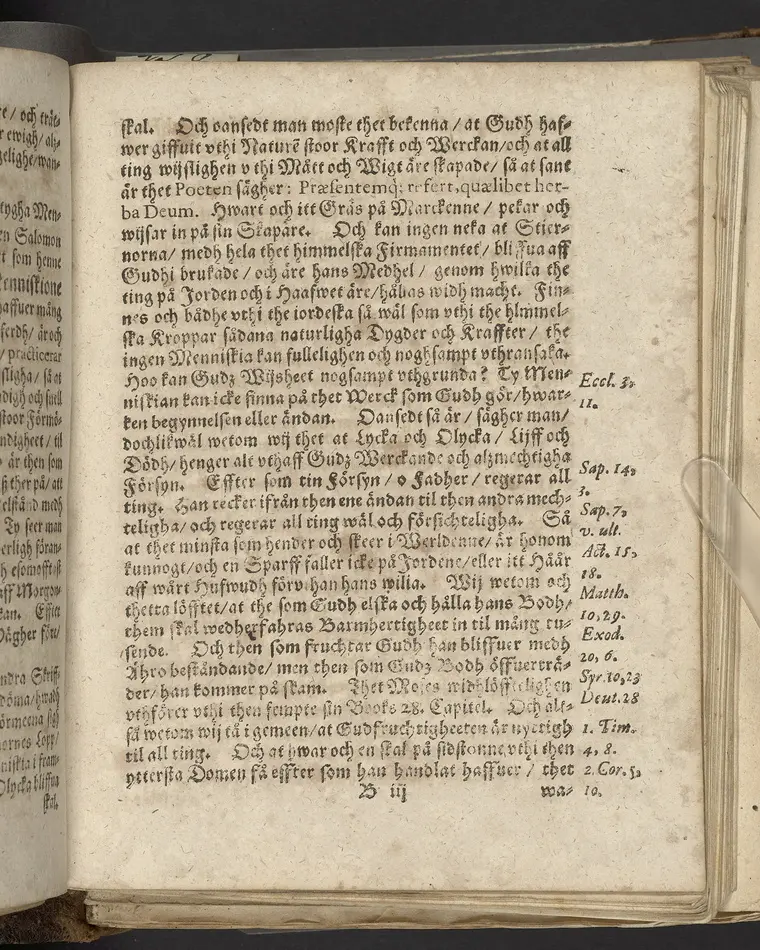 skal. Och oansedt man moste thet bekenna / at Gudh haf-
wer giffuit vthi Naturē stoor Krafft och Werckan/och at all
ting wijslighen vthi Mått och Wigt äre skapade/ så at sant
är thet Poeten sägher: Præsentemq; refert, quælibet her-
ba Deum. Hwart och itt Gräs på Marckenne / pekar och
wijsar in på sin Skapare. Och kan ingen neka at Stier-
norna/ medh hela thet himmelska Firmamentet/ bliffua aff
Gudhi brukade / och äre hans Medhel / genom hwilka the
ting på Jorden och i Haafwet äre/hållas widh macht. Fin-
nes och bådhe vthi the iordeska så wäl som vthi the himmel-
ska Kroppar sådana naturligha Dygder och Kraffter / the
ingen Menniskia kan fullelighen och noghsampt vthransaka.
Hoo kan Gudz Wijsheet nogsampt vthgrunda? Ty Men-
niskian kan icke finna på thet Werck som Gudh gör/hwar-
ken begynnelsen eller ändan. Oansedt så är / sägher man/
dochlikwäl wetom wij thet at Lycka och Olycka / Lijff och
Dödh/ henger alt vthaff Gudz Werckande och alzmechtigha
Försyn. Effter som tin Försyn / o Fadher / regerar all
ting. Han recker ifrån then ene ändan til then andra mech-
teligha/ och regerar all ting wäl och försichteligha. Så
at thet minsta som hender och skeer i Werldenne/ är honom
kunnogt/och en Sparff faller icke på Jordene/eller itt Håår
aff wårt Hufwudh förvthan hans wilia. Wij wetom och
thetta löfftet/at the som Gudh elska och hålla hans Bodh/
them skal wedherfahras Barmhertigheet in til mång tu-
sende. Och then som fruchtar Gudh han bliffuer medh
Ähro beståndande/ men then som Gudz Bodh öffuerträ-
der/ han kommer på skam. Thet Moses widhlöfftelighen
vthförer vthi then fempte sin Books 28. Capitel. Och alt-
så wetom wij tå i gemeen/at Gudfruchtigheeten är nyttigh
til all ting. Och at hwar och en skal på sidstonne vthi then
yttersta Domen få effter som han handlat haffuer / thet
B iij wa-
Eccl. 3,
11.
Sap. 14,
3.
Sap. 7,
v. ult.
Act. 15,
18.
Matth.
10, 29.
Exod.
20, 6.
Syr. 10, 23
Deut. 28
1. Tim.
4, 8.
2. Cor. 5,
10.